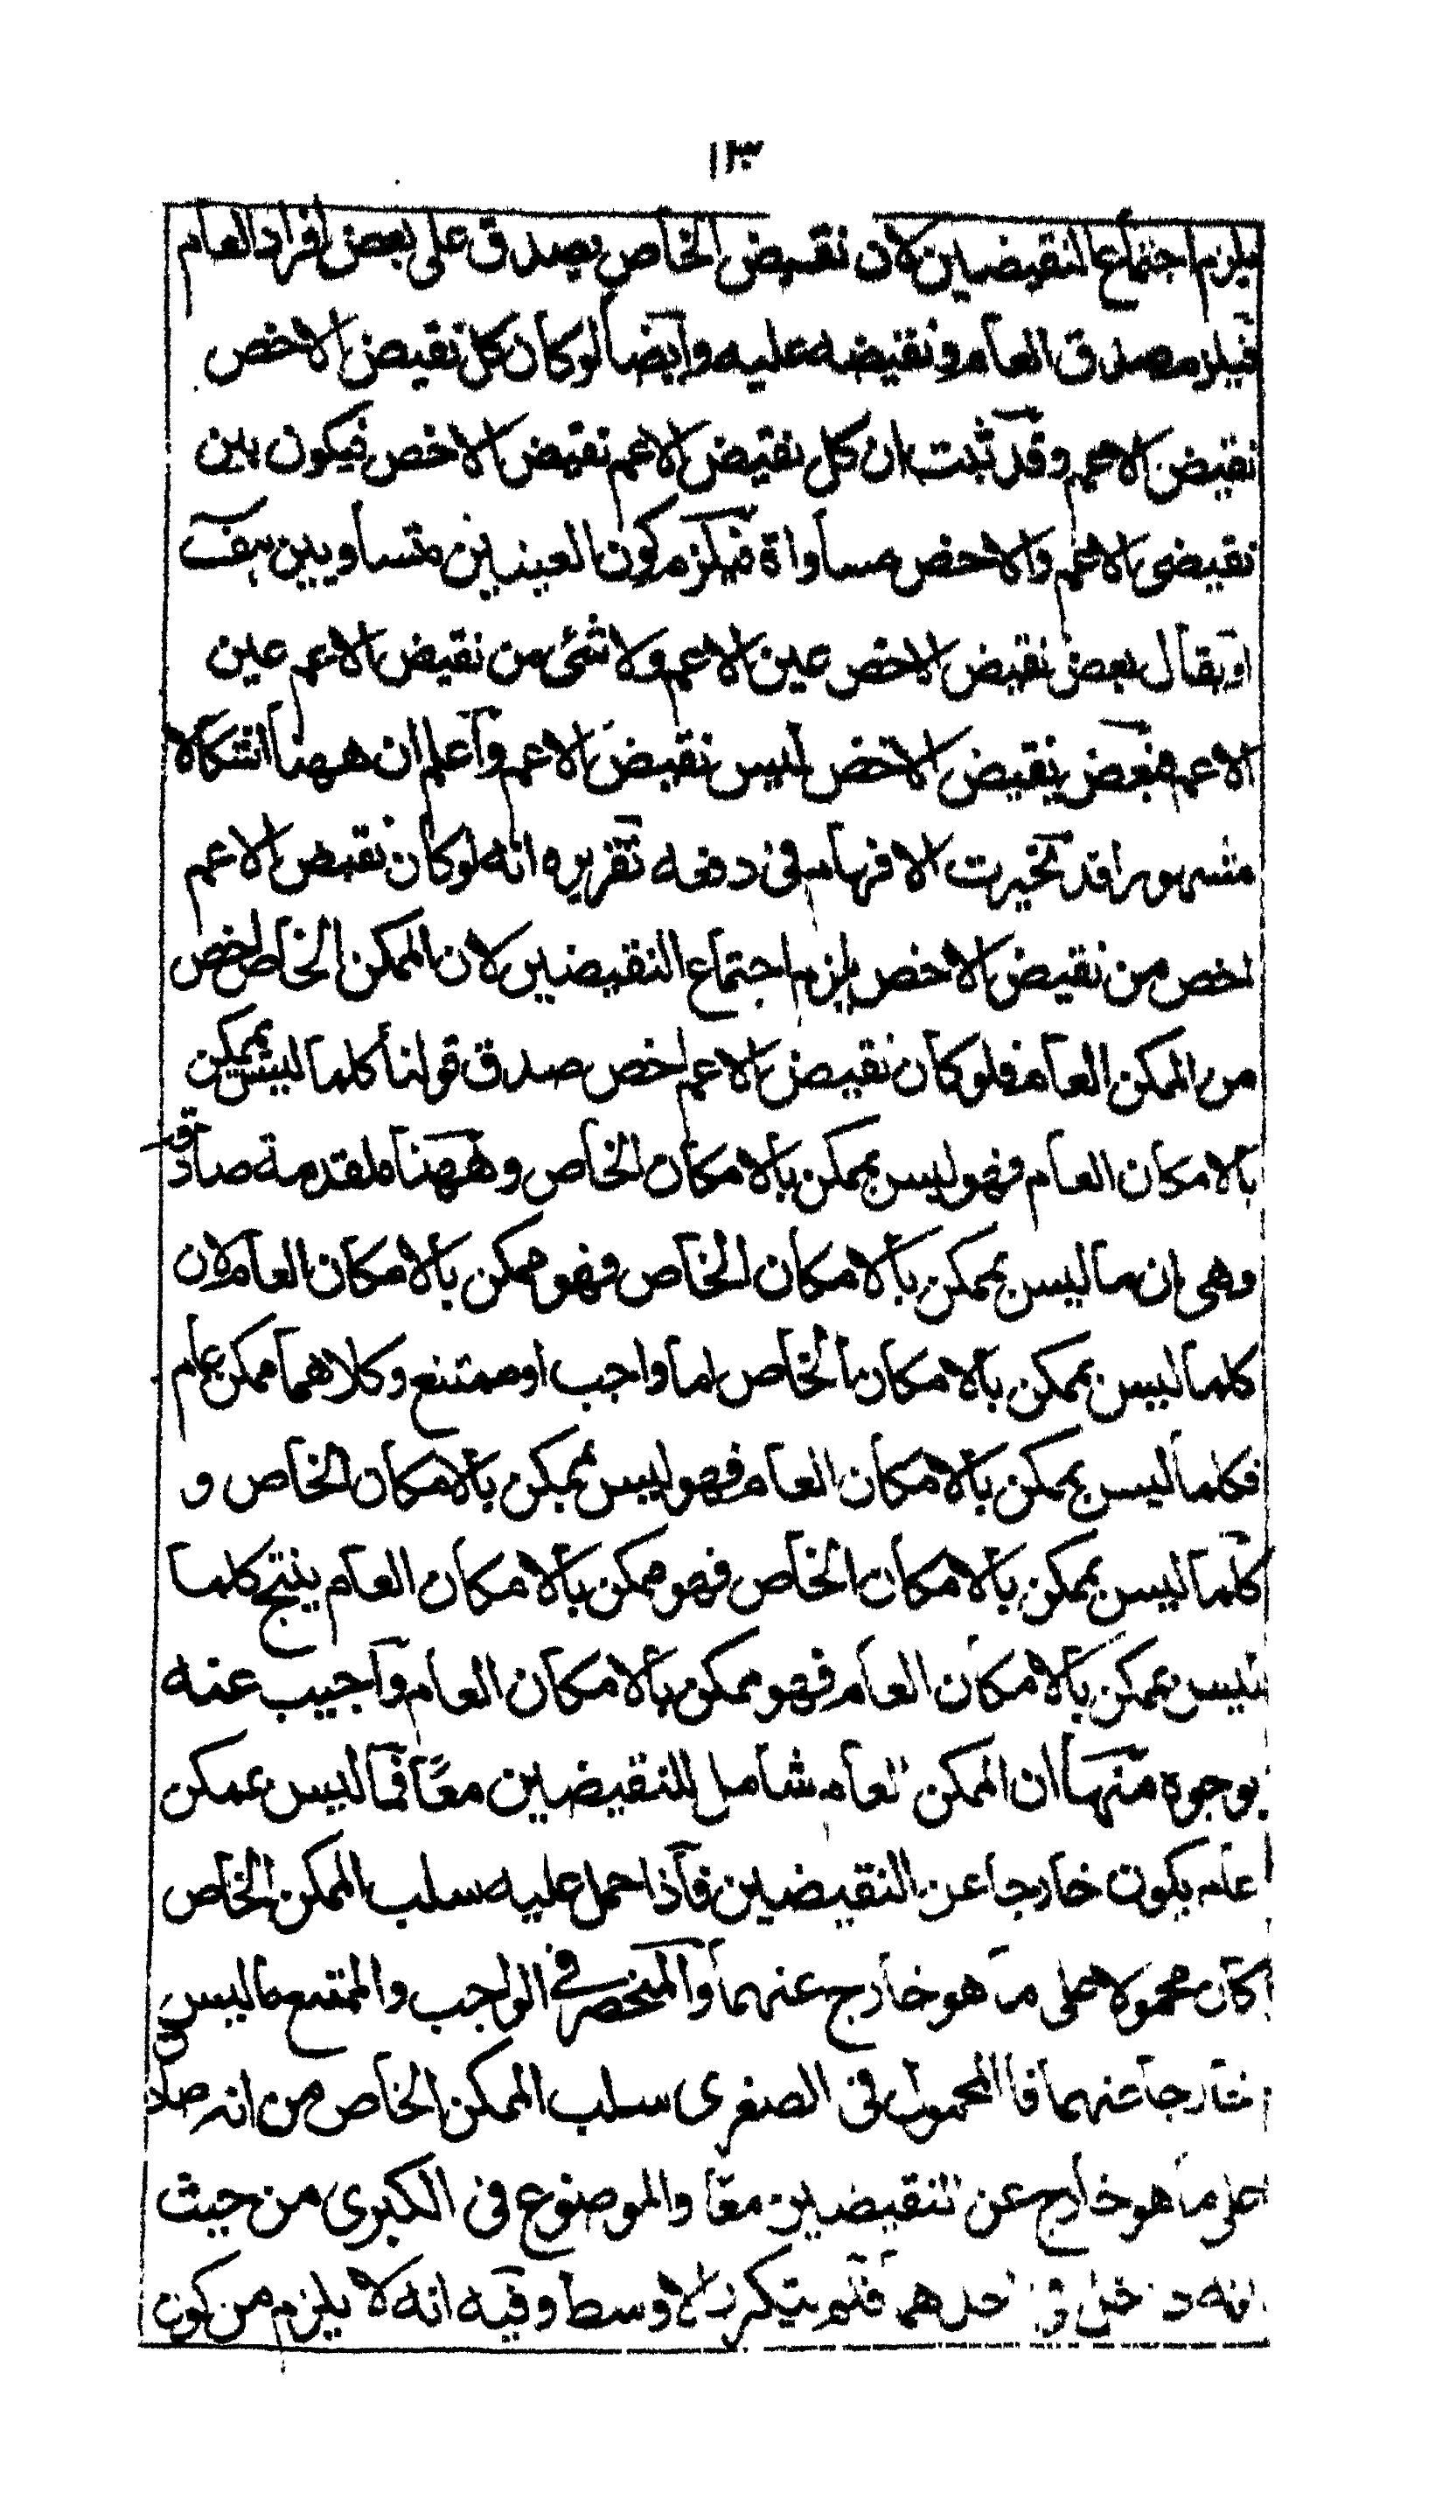 ١١٣
يلزم اجتماع النقيضين لان نقيض الخاص يصدق على بعض افراد العام
فيلزم صدق العام ونقيضه عليه وايضا لو كان كل نقيض الاخص
نقيض الاعم وقد ثبت ان كل نقيض الاعم نقيض الاخص فيكون بين
نقيضى الاعم والاخص مساواة فيلزم كون العينين متساويين هف
او يقال بعض نقيض الاخص عين الاعم ولا شئ من نقيض الاعم عين
الاعم فبعض نقيض الاخص ليس نقيض الاعم واعلم ان ههنا اشكالا
مشهورا قد تحيرت الافهام فى دفعه تقريره انه لو كان نقيض الاعم
اخص من نقيض الاخص يلزم اجتماع النقيضين لان الممكن الخاص اخص
من الممكن العام فلو كان نقيض الاعم اخص صدق قولنا كلما ليس بممكن
بالامكان العام فهو ليس بممكن بالامكان الخاص وههنا مقدمة صادقة
وهى ان ما ليس بممكن بالامكان الخاص فهو ممكن بالامكان العام لان
كلما ليس بممكن بالامكان الخاص اما واجب او ممتنع وكلاهما ممكن عام
فكلما ليس بممكن بالامكان العام فهو ليس بممكن بالامكان الخاص و
كلما ليس بممكن بالامكان الخاص فهو ممكن بالامكان العام ينتج كلما
ليس بممكن بالامكان العام فهو ممكن بالامكان العام واجيب عنه
بوجوه منها ان الممكن العام شامل للنقيضين معا فما ليس بممكن
عام يكون خارجا عن النقيضين فاذا حمل عليه سلب الممكن الخاص
كان محمولا على ما هو خارج عنهما والمنحصر فى الواجب والممتنع ما ليس
خارجا عنهما فالمحمول فى الصغرى سلب الممكن الخاص من انه صادق
على ما هو خارج عن النقيضين معا والموضوع فى الكبرى من حيث
انه داخل فى احدهما فلم يتكرر الاوسط وفيه انه لا يلزم من كون